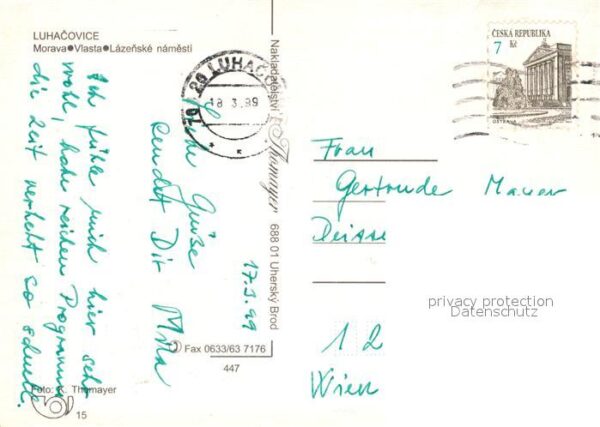 LUHAČOVICE
Morava●Vlasta●Lázeňské náměstí
Ich fühle mich hier sehr
wohl, habe reichen Programm
die Zeit vergeht so schnell.
Liebe Grüße
sendet Dir Mila
17.3.99
Nakladatelství Thomayer 688 01 Uherský Brod
Fax 0633/63 7176
447
Foto: K. Thomayer
15
LUHAČOV
18.3.99
ČESKÁ REPUBLIKA
7
Kč
OSTRAVA
Frau
Gertrude Mauer
Deisse
privacy protection
Datenschutz
12
Wien